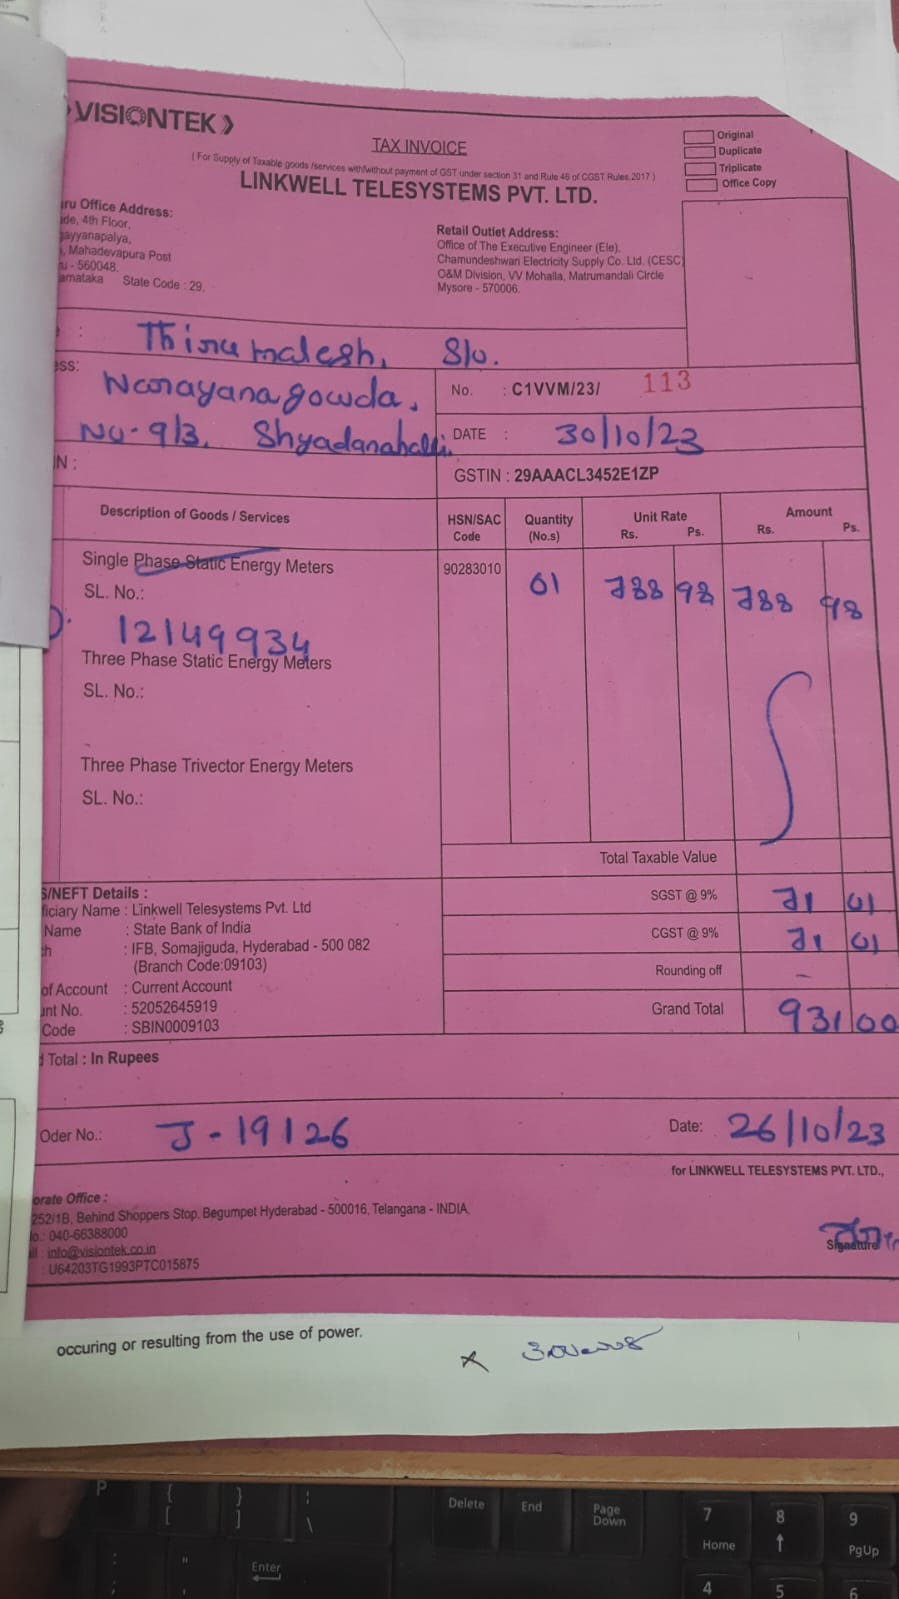 VISIONTEK
TAX INVOICE
( For Supply of Taxable goods /services with/without payment of GST under section 31 and Rule 46 of CGST Rules.2017 )
LINKWELL TELESYSTEMS PVT. LTD.
Original
Duplicate
Triplicate
Office Copy
ru Office Address:
de, 4th Floor,
gayyanapalya,
, Mahadevapura Post
- 560048.
arnataka State Code : 29,
Retail Outlet Address:
Office of The Executive Engineer (Ele),
Chamundeshwari Electricity Supply Co. Ltd. (CESC)
O&M Division, VV Mohalla, Matrumandali Circle
Mysore - 570006.
: Thirumalesh, S/o.
ess: Narayanagowda,
No-9/3, Shyadanahalli.
No. : C1VVM/23/ 113
DATE : 30/10/23
IN :
GSTIN : 29AAACL3452E1ZP
Description of Goods / Services HSN/SAC Code Quantity (No.s) Unit Rate Rs. Ps. Amount Rs. Ps.
Single Phase Static Energy Meters 90283010 01 788 98 788 98
SL. No.:
12149934
Three Phase Static Energy Meters
SL. No.:
Three Phase Trivector Energy Meters
SL. No.:
Total Taxable Value
SGST @ 9% 71 01
CGST @ 9% 71 01
Rounding off -
Grand Total 931 00
S/NEFT Details :
ficiary Name : Linkwell Telesystems Pvt. Ltd
Name : State Bank of India
: IFB, Somajiguda, Hyderabad - 500 082
(Branch Code:09103)
of Account : Current Account
unt No. : 52052645919
Code : SBIN0009103
Total : In Rupees
Oder No.: J-19126 Date: 26/10/23
for LINKWELL TELESYSTEMS PVT. LTD.,
orate Office :
252/1B, Behind Shoppers Stop, Begumpet Hyderabad - 500016, Telangana - INDIA,
lo.: 040-66388000
il : info@visiontek.co.in
: U64203TG1993PTC015875
Signature
occuring or resulting from the use of power.
P
{
[
}
]
\
Delete
End
Page Down
7
Home
8
9
PgUp
Enter
4
5
6